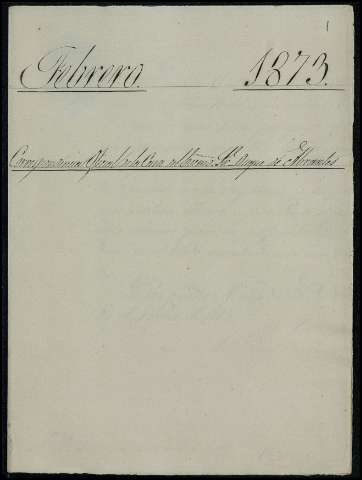 1
Febrero. 1873.
Correspondencia Oficial de la Casa del Excmo. Sr. Duque de